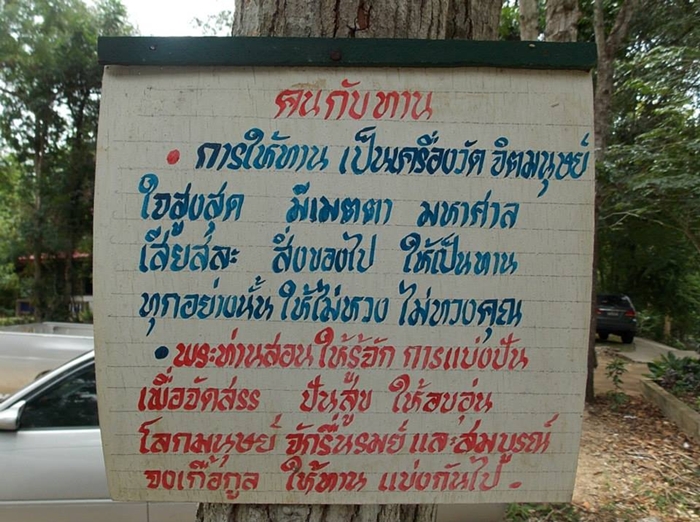 คนกับทาน
• การให้ทาน เป็นเครื่องวัด จิตมนุษย์
ใจสูงสุด มีเมตตา มหาศาล
เสียสละ สิ่งของไป ให้เป็นทาน
ทุกอย่างนั้น ให้ไม่หวง ไม่ทวงคุณ
• พระท่านสอนให้รู้จัก การแบ่งปัน
เพื่อจัดสรร ปันสู่ข ให้อบอุ่น
โลกมนุษย์ จักรื่นรมย์ และสมบูรณ์
จงเกื้อกูล ให้ทาน แบ่งกันไป.